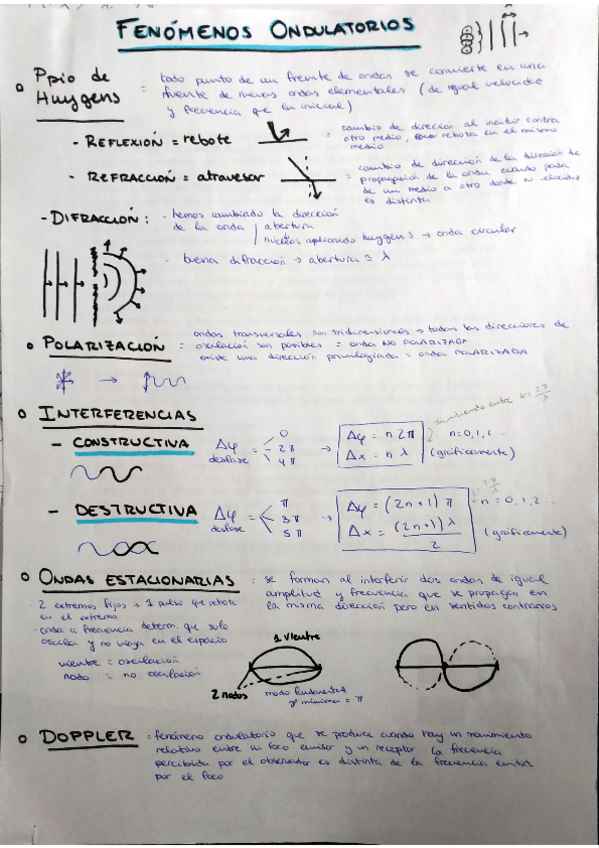 FENÓMENOS ONDULATORIOS
Ppio de Huygens = todo punto de un frente de ondas se convierte en una
fuente de nuevas ondas elementales (de igual velocidad
y frecuencia que la inicial)
- REFLEXIÓN = rebote = cambio de dirección al incidir contra
otro medio, rebota en el mismo
medio
- REFRACCIÓN = atravesar = cambio de dirección de la dirección de
propagación de la onda cuando pasa
de un medio a otro donde v
es distinta
- DIFRACCIÓN: · hemos cambiado la dirección
de la onda | abertura
nuevos aplicando huygens → onda circular
· buena difracción → abertura ≃ λ
POLARIZACIÓN = ondas transversales son tridimensionales → todas las direcciones de
oscilación son posibles = onda NO POLARIZADA
existe una dirección privilegiada = onda POLARIZADA
INTERFERENCIAS
- CONSTRUCTIVA Δφ = 0 2π 4π → Δφ = n 2π n=0,1,2...
desfase Δx = n λ (gráficamente)
dividiendo entre k = 2π/λ
- DESTRUCTIVA Δφ = π 3π 5π → Δφ = (2n+1) π n = 0,1,2...
desfase Δx = (2n+1)λ / 2 (gráficamente)
ONDAS ESTACIONARIAS : se forman al interferir dos ondas de igual
amplitud y frecuencia que se propagan en
la misma dirección pero en sentidos contrarios
- 2 extremos fijos + 1 pulso que rebota
en el extremo
- onda a frecuencia determ. que solo
oscila y no viaja en el espacio
vientre = oscilación
nodo = no oscilación
1 vientre
2 nodos
modo fundamental
mínima = π
DOPPLER : fenómeno ondulatorio que se produce cuando hay un movimiento
relativo entre un foco emisor y un receptor la frecuencia
percibida por el observador es distinta de la frecuencia emitida
por el foco